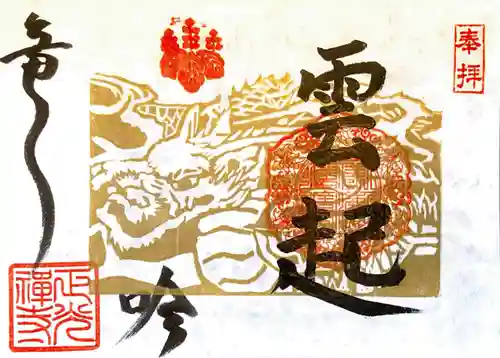 奉拝
雲起
竜吟
正光
禅寺